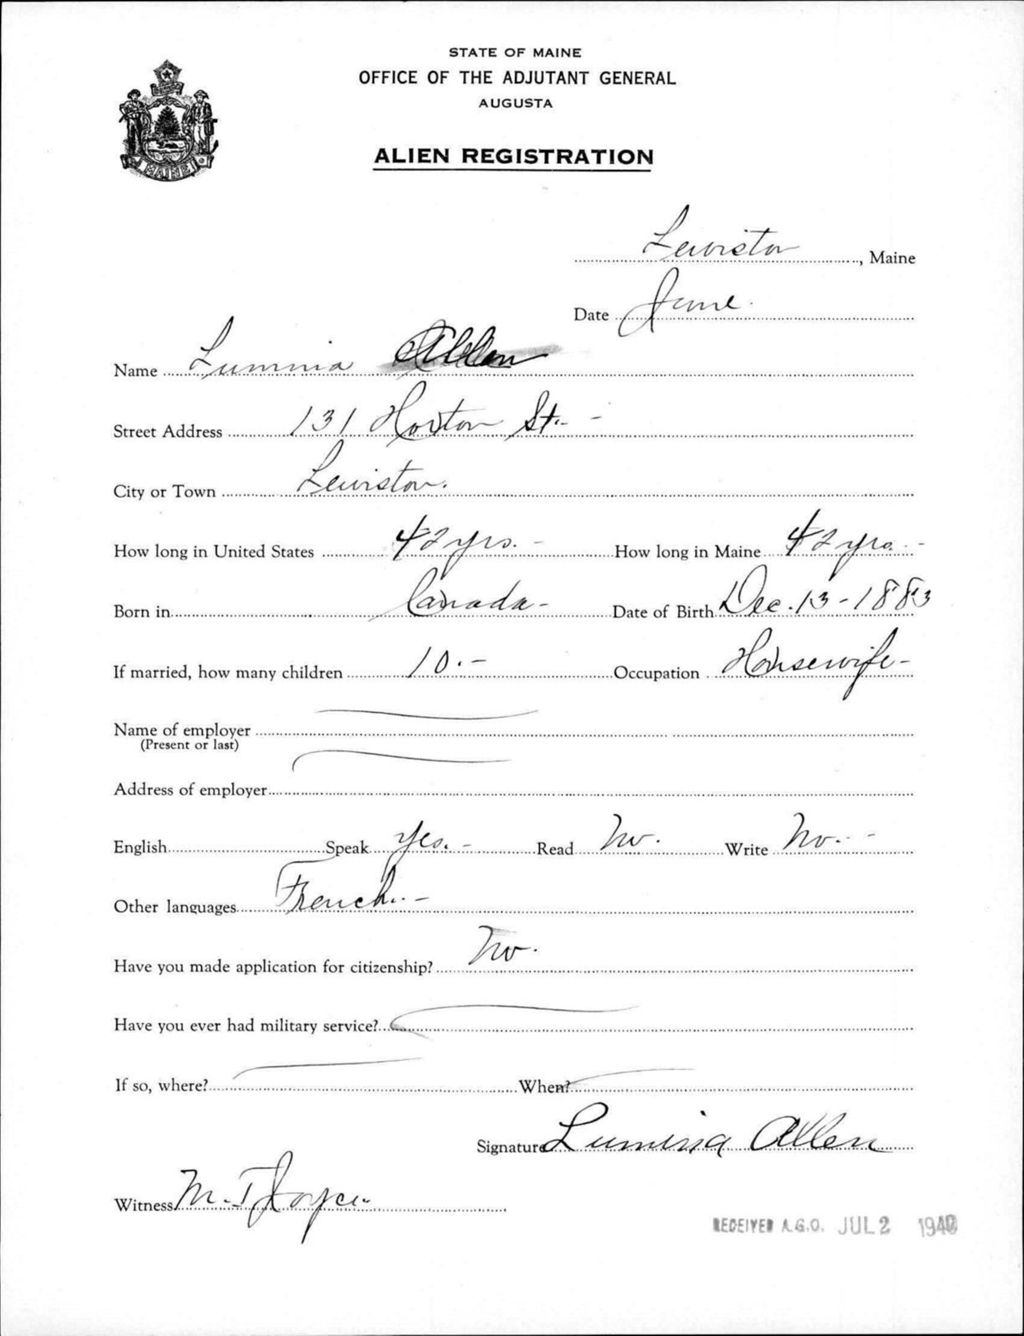 STATE OF MAINE
OFFICE OF THE ADJUTANT GENERAL
AUGUSTA
ALIEN REGISTRATION
MAINE
Lewiston, Maine
Date June.
Name Lumina Allen
Street Address 131 Horton St. -
City or Town Lewiston.
How long in United States 42 yrs. - How long in Maine 42 yrs. -
Born in Canada - Date of Birth Dec. 13 - 1883
If married, how many children 10. - Occupation Housewife -
Name of employer
(Present or last)
Address of employer
English Speak Yes. - Read No. Write No. -
Other languages French. -
Have you made application for citizenship? No.
Have you ever had military service?
If so, where? When?
Signature Lumina Allen
Witness M. T. Joyce
RECEIVED A.G.O. JUL 2 1940